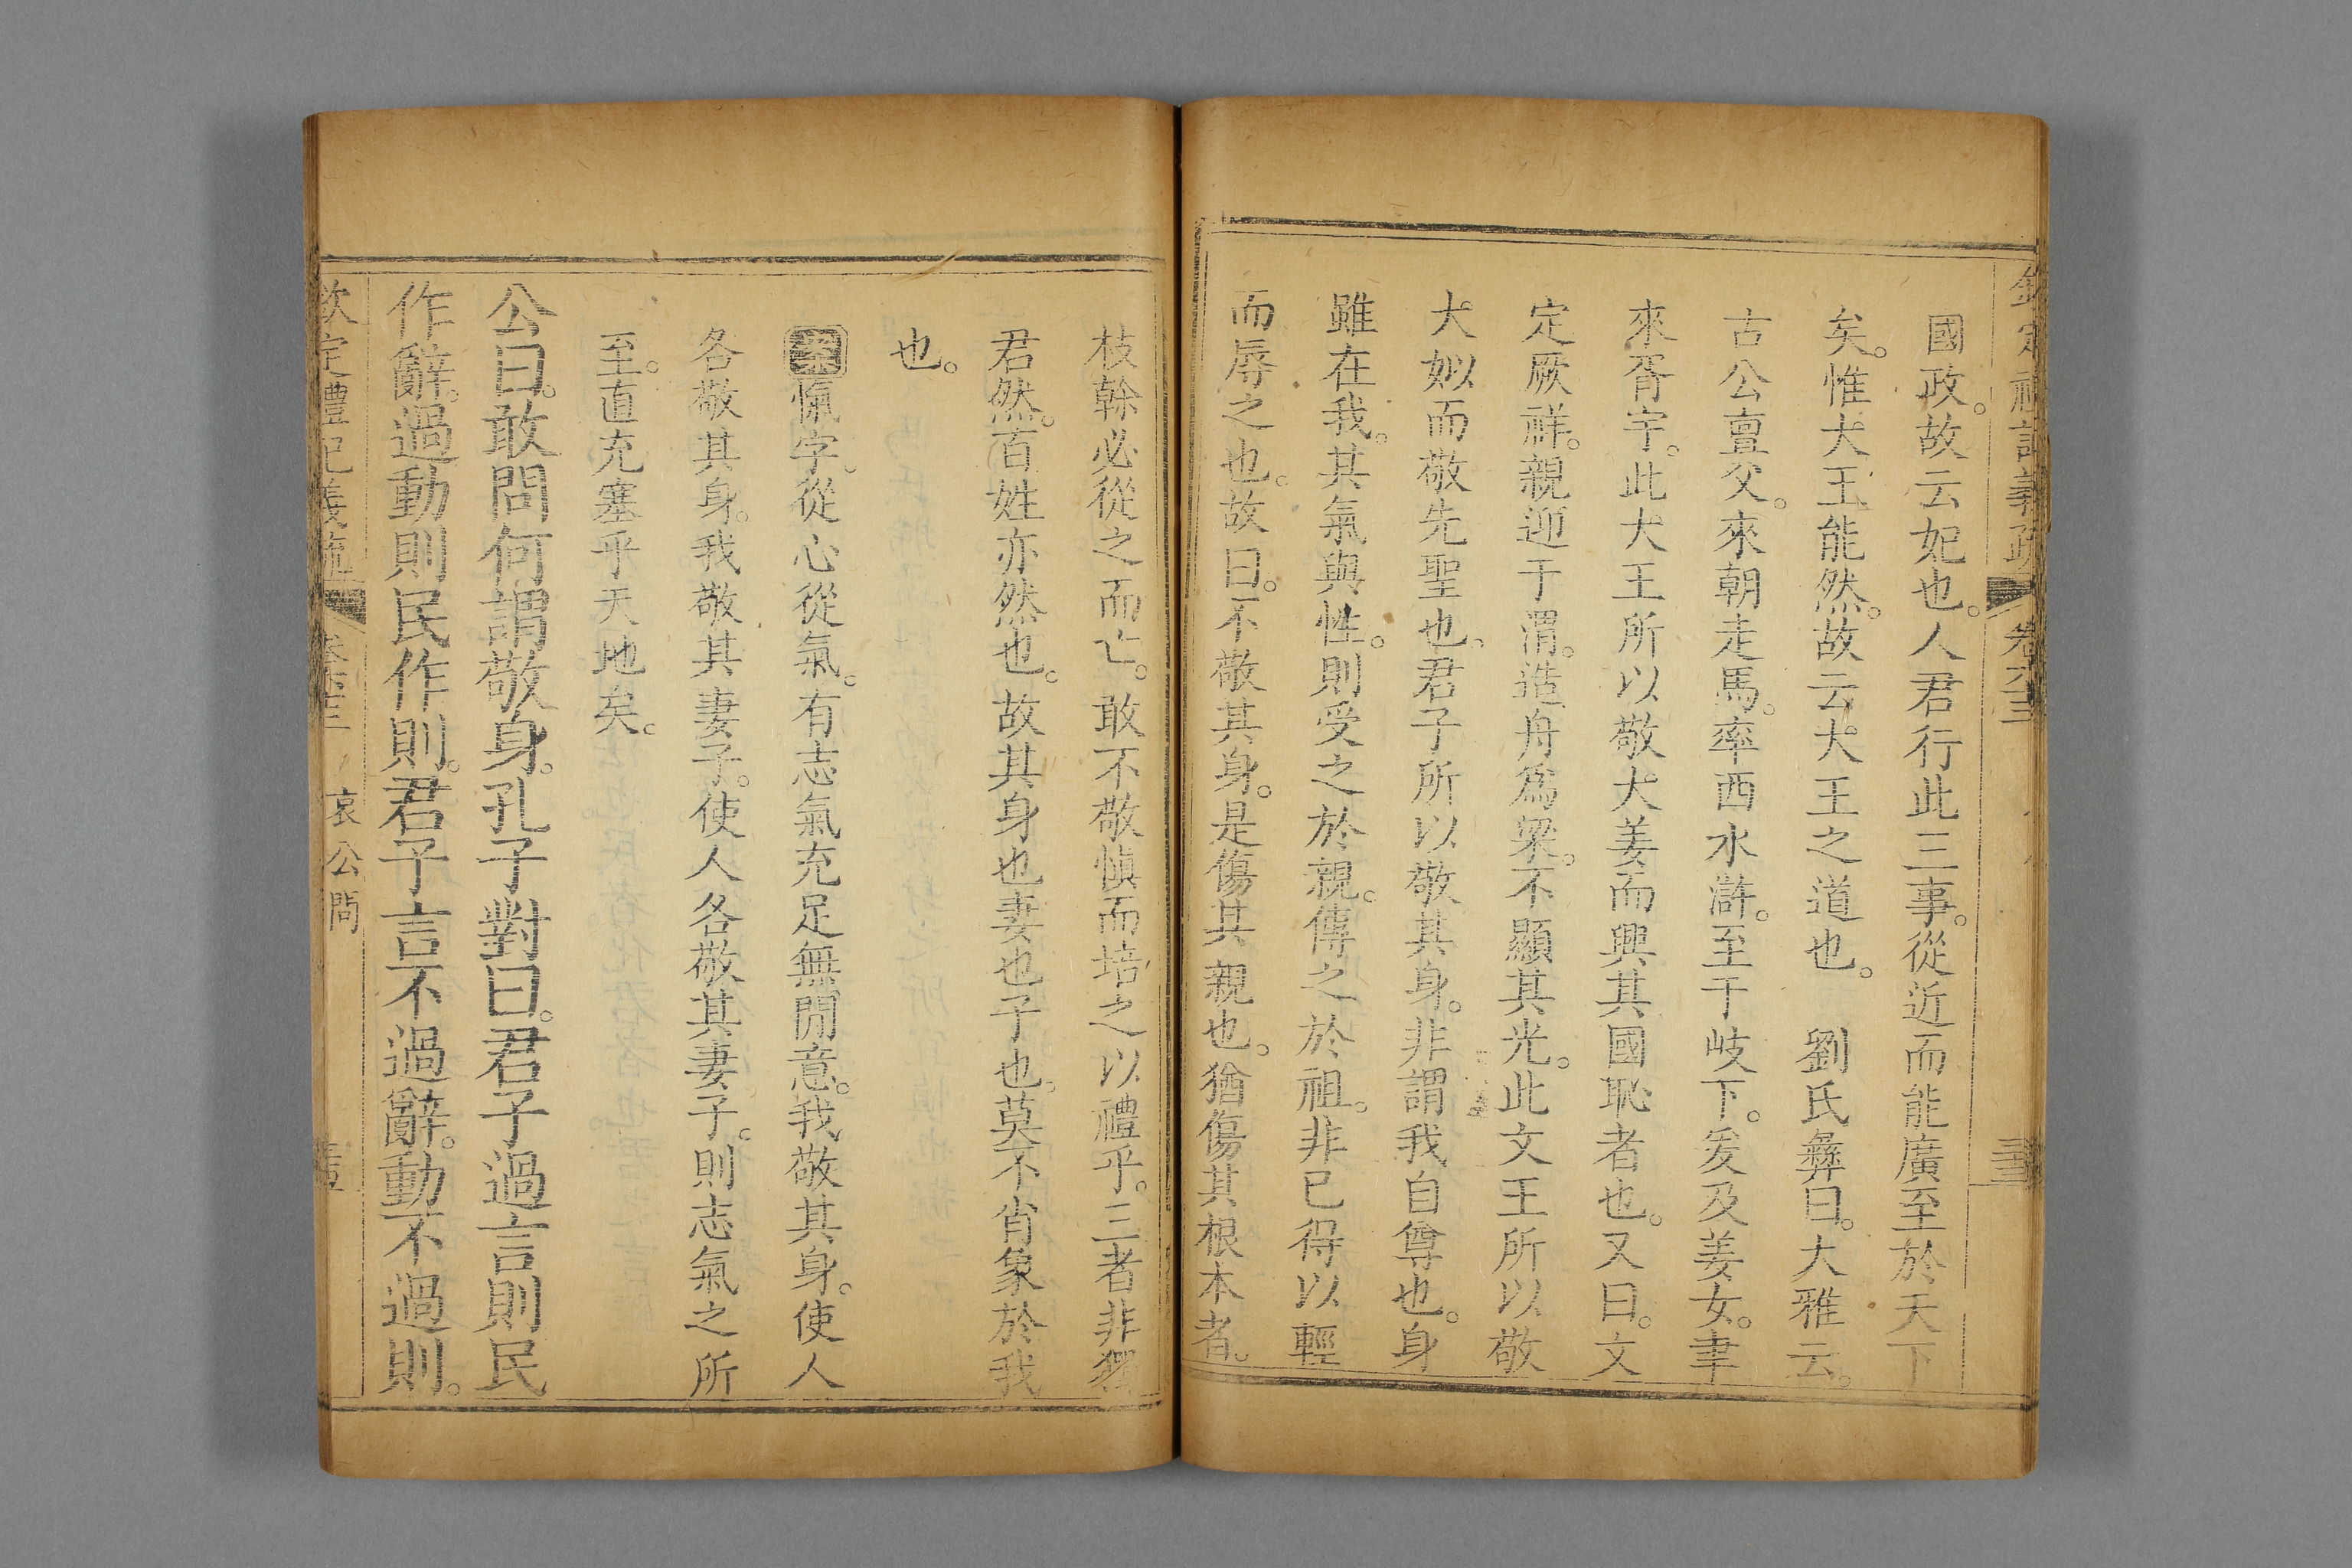 欽定禮記義疏 卷六十三
國政。故云妃也。人君行此三事。從近而能廣至於天下
矣。惟大王能然。故云大王之道也。 劉氏彝曰。大雅云。
古公亶父。來朝走馬。率西水滸。至于岐下。爰及姜女。聿
來胥宇。此大王所以敬大姜而興其國恥者也。又曰。文
定厥祥。親迎于渭。造舟爲梁。不顯其光。此文王所以敬
大姒而敬先聖也。君子所以敬其身。非謂我自尊也。身
雖在我。其氣與性。則受之於親。傳之於祖。非已得以輕
而辱之也。故曰。不敬其身。是傷其親也。猶傷其根本者。
枝幹必從之而亡。敢不敬慎而培之以禮乎。三者非獨
君然。百姓亦然也。故其身也妻也子也。莫不肖象於我
也。
案愾字。從心從氣。有志氣充足無閒意。我敬其身。使人
各敬其身。我敬其妻子。使人各敬其妻子。則志氣之所
至。直充塞乎天地矣。
公曰。敢問何謂敬身。孔子對曰。君子過言則民
作辭。過動則民作則。君子言不過辭。動不過則。
欽定禮記義疏 卷六十三 哀公問